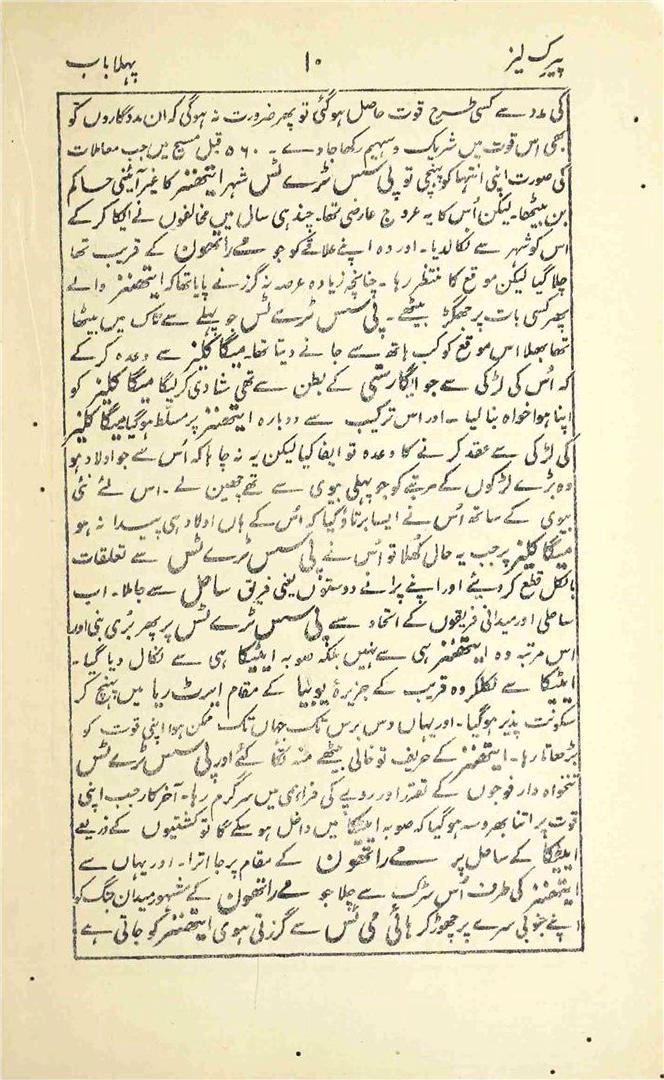 پیرک لیز
۱۰
پہلا باب
کی مدد سے کسی طرح قوت حاصل ہو گئی تو پھر ضرورت نہ ہو گی کہ ان مددگاروں کو
بھی اس قوت میں شریک و سہیم رکھا جاوے ۔ ۵۶۰ قبل مسیح میں جب معاملات
کی صورت اپنی انتہا کو پہنچی تو پی سس ٹرے ٹس شہر ایتھنز کا غیر آئینی حاکم
بن بیٹھا ۔ لیکن اُس کا یہ عروج عارضی تھا ۔ چند ہی سال میں مخالفوں نے ایکا کر کے
اس کو شہر سے نکال دیا ۔ اور وہ اپنے علاقے کو جو مے راتھون کے قریب تھا
چلا گیا لیکن موقع کا منتظر رہا ۔ چنانچہ زیادہ عرصہ نہ گزرنے پایا تھا کہ ایتھنز والے
پھر کسی بات پر جھگڑ بیٹھے ۔ پی سس ٹرے ٹس جو پہلے سے تاک میں بیٹھا
تھا بھلا اس موقع کو کب ہاتھ سے جانے دیتا تھا ۔ میگا کلیز سے وعدہ کر کے
کہ اُس کی لڑکی سے جو ایگارسٹی کے بطن سے تھی شادی کر لیگا میگا کلیز کو
اپنا ہوا خواہ بنا لیا ۔ اور اس ترکیب سے دوبارہ ایتھنز پر مسلط ہو گیا میگا کلیز
کی لڑکی سے عقد کرنے کا وعدہ تو ایفا کیا لیکن یہ نہ چاہا کہ اس سے جو اولاد ہو
وہ بڑے لڑکوں کے مرتبے کو جو پہلی بیوی سے تھے چھین لے ۔ اس لئے نئی
بیوی کے ساتھ اُس نے ایسا برتاؤ کیا کہ اُس کے ہاں اولاد ہی پیدا نہ ہو
میگا کلیز پر جب یہ حال کھلا تو اُس نے پی سس ٹرے ٹس سے تعلقات
بالکل قطع کر دیئے اور اپنے پرانے دوستوں یعنی فریق ساحل سے جا ملا ۔ اب
ساحلی اور میدانی فریقوں کے اتحاد سے پی سس ٹرے ٹس پر پھر بُری بنی اور
اس مرتبہ وہ ایتھنز ہی سے نہیں بلکہ صوبہ ایٹیکا ہی سے نکال دیا گیا ۔
ایٹیکا سے نکلکر وہ قریب کے جزیرۂ یوبیا کے مقام ایرٹ ریا میں پہنچ کر
سکونت پذیر ہو گیا ۔ اور یہاں دس برس تک جہاں تک ممکن ہوا اپنی قوت کو
بڑھاتا رہا ۔ ایتھنز کے حریف تو خالی بیٹھے منہ تکا کئے اور پی سس ٹرے ٹس
تنخواہ دار فوجوں کے تقرر اور روپے کی فراہمی میں سرگرم رہا ۔ آخر کار جب اپنی
قوت پر اتنا بھروسہ ہو گیا کہ صوبہ ایٹیکا میں داخل ہو سکے گا تو کشتیوں کے ذریعے
ایٹیکا کے ساحل پر مے راتھون کے مقام پر جا اترا ۔ اور یہاں سے
ایتھنز کی طرف اُس سڑک سے چلا جو مے راتھون کے مشہور میدان جنگ کو
اپنے جنوبی سرے پر چھوڑ کر ہائی می ٹس سے گزرتی ہوی ایتھنز کو جاتی ہے